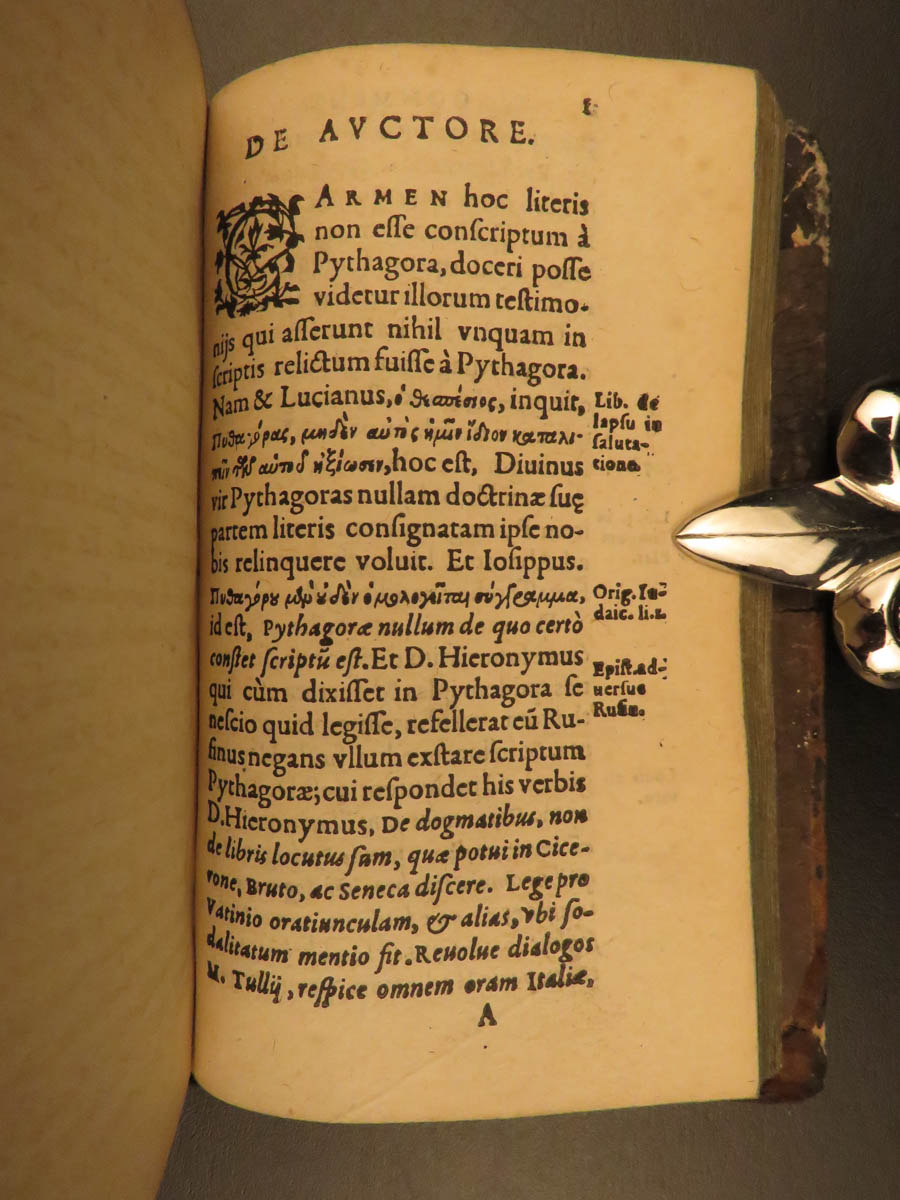 1
DE AVCTORE.
CARMEN hoc literis
non eſſe conſcriptum à
Pythagora, doceri poſſe
videtur illorum teſtimo-
nijs qui aſſerunt nihil vnquam in
ſcriptis relictum fuiſſe à Pythagora.
Nam & Lucianus, ὁ θεασέσιος, inquit,
Πυθαγόρας, μηδὲν αὐτὸς ἡμῖν ἴδιον καταλι-
πεῖν τῶν αὑτοῦ ἠξίωσεν, hoc eſt, Diuinus
vir Pythagoras nullam doctrinæ ſuę
partem literis conſignatam ipſe no-
bis relinquere voluit. Et Ioſippus.
Πυθαγόρου μὲν οὐδὲν ὁμολογεῖται σύγγραμμα,
id eſt, Pythagoræ nullum de quo certò
conſtet ſcriptũ eſt. Et D. Hieronymus
qui cùm dixiſſet in Pythagora ſe
neſcio quid legiſſe, refellerat eũ Ru-
finus negans vllum exſtare ſcriptum
Pythagoræ; cui reſpondet his verbis
D. Hieronymus, De dogmatibus, non
de libris locutus ſum, quæ potui in Cice-
rone, Bruto, ac Seneca diſcere. Lege pro
Vatinio oratiunculam, & alias, vbi ſo-
dalitatum mentio fit. Reuolue dialogos
M. Tullij, reſpice omnem oram Italiæ,
A
Lib. de
lapſu in
ſaluta-
tione.
Orig. Iu-
daic. li. 1.
Epiſt. ad-
uerſus
Rufin.